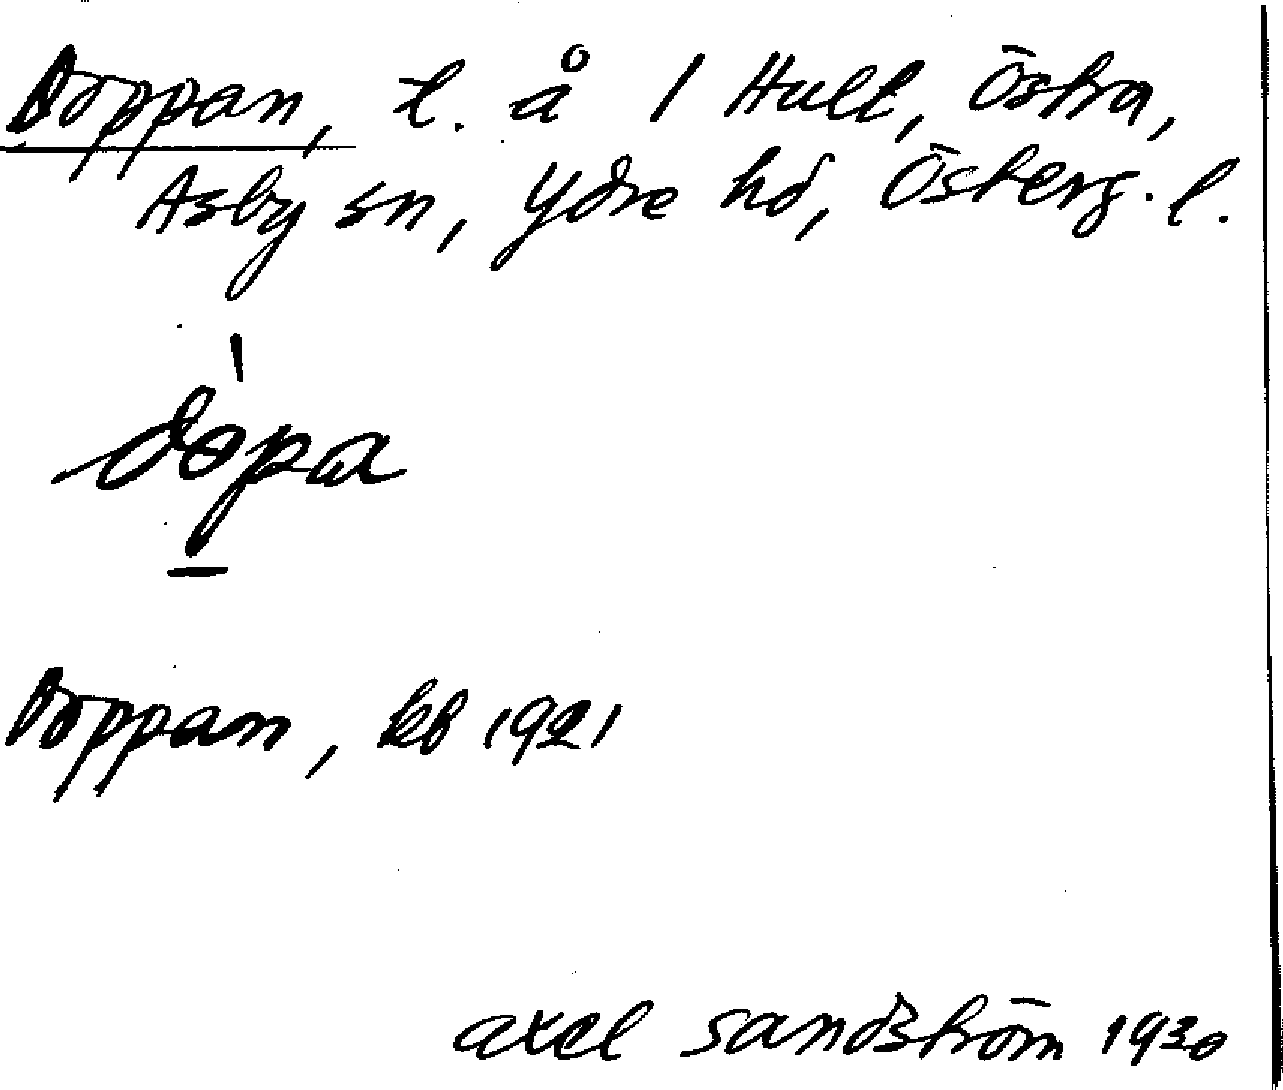 Doppan, t. å 1 Hult, Östra,
Asby sn, Ydre hd, Österg. l.
dopa
Doppan, kb 1921
axel sandström 1930